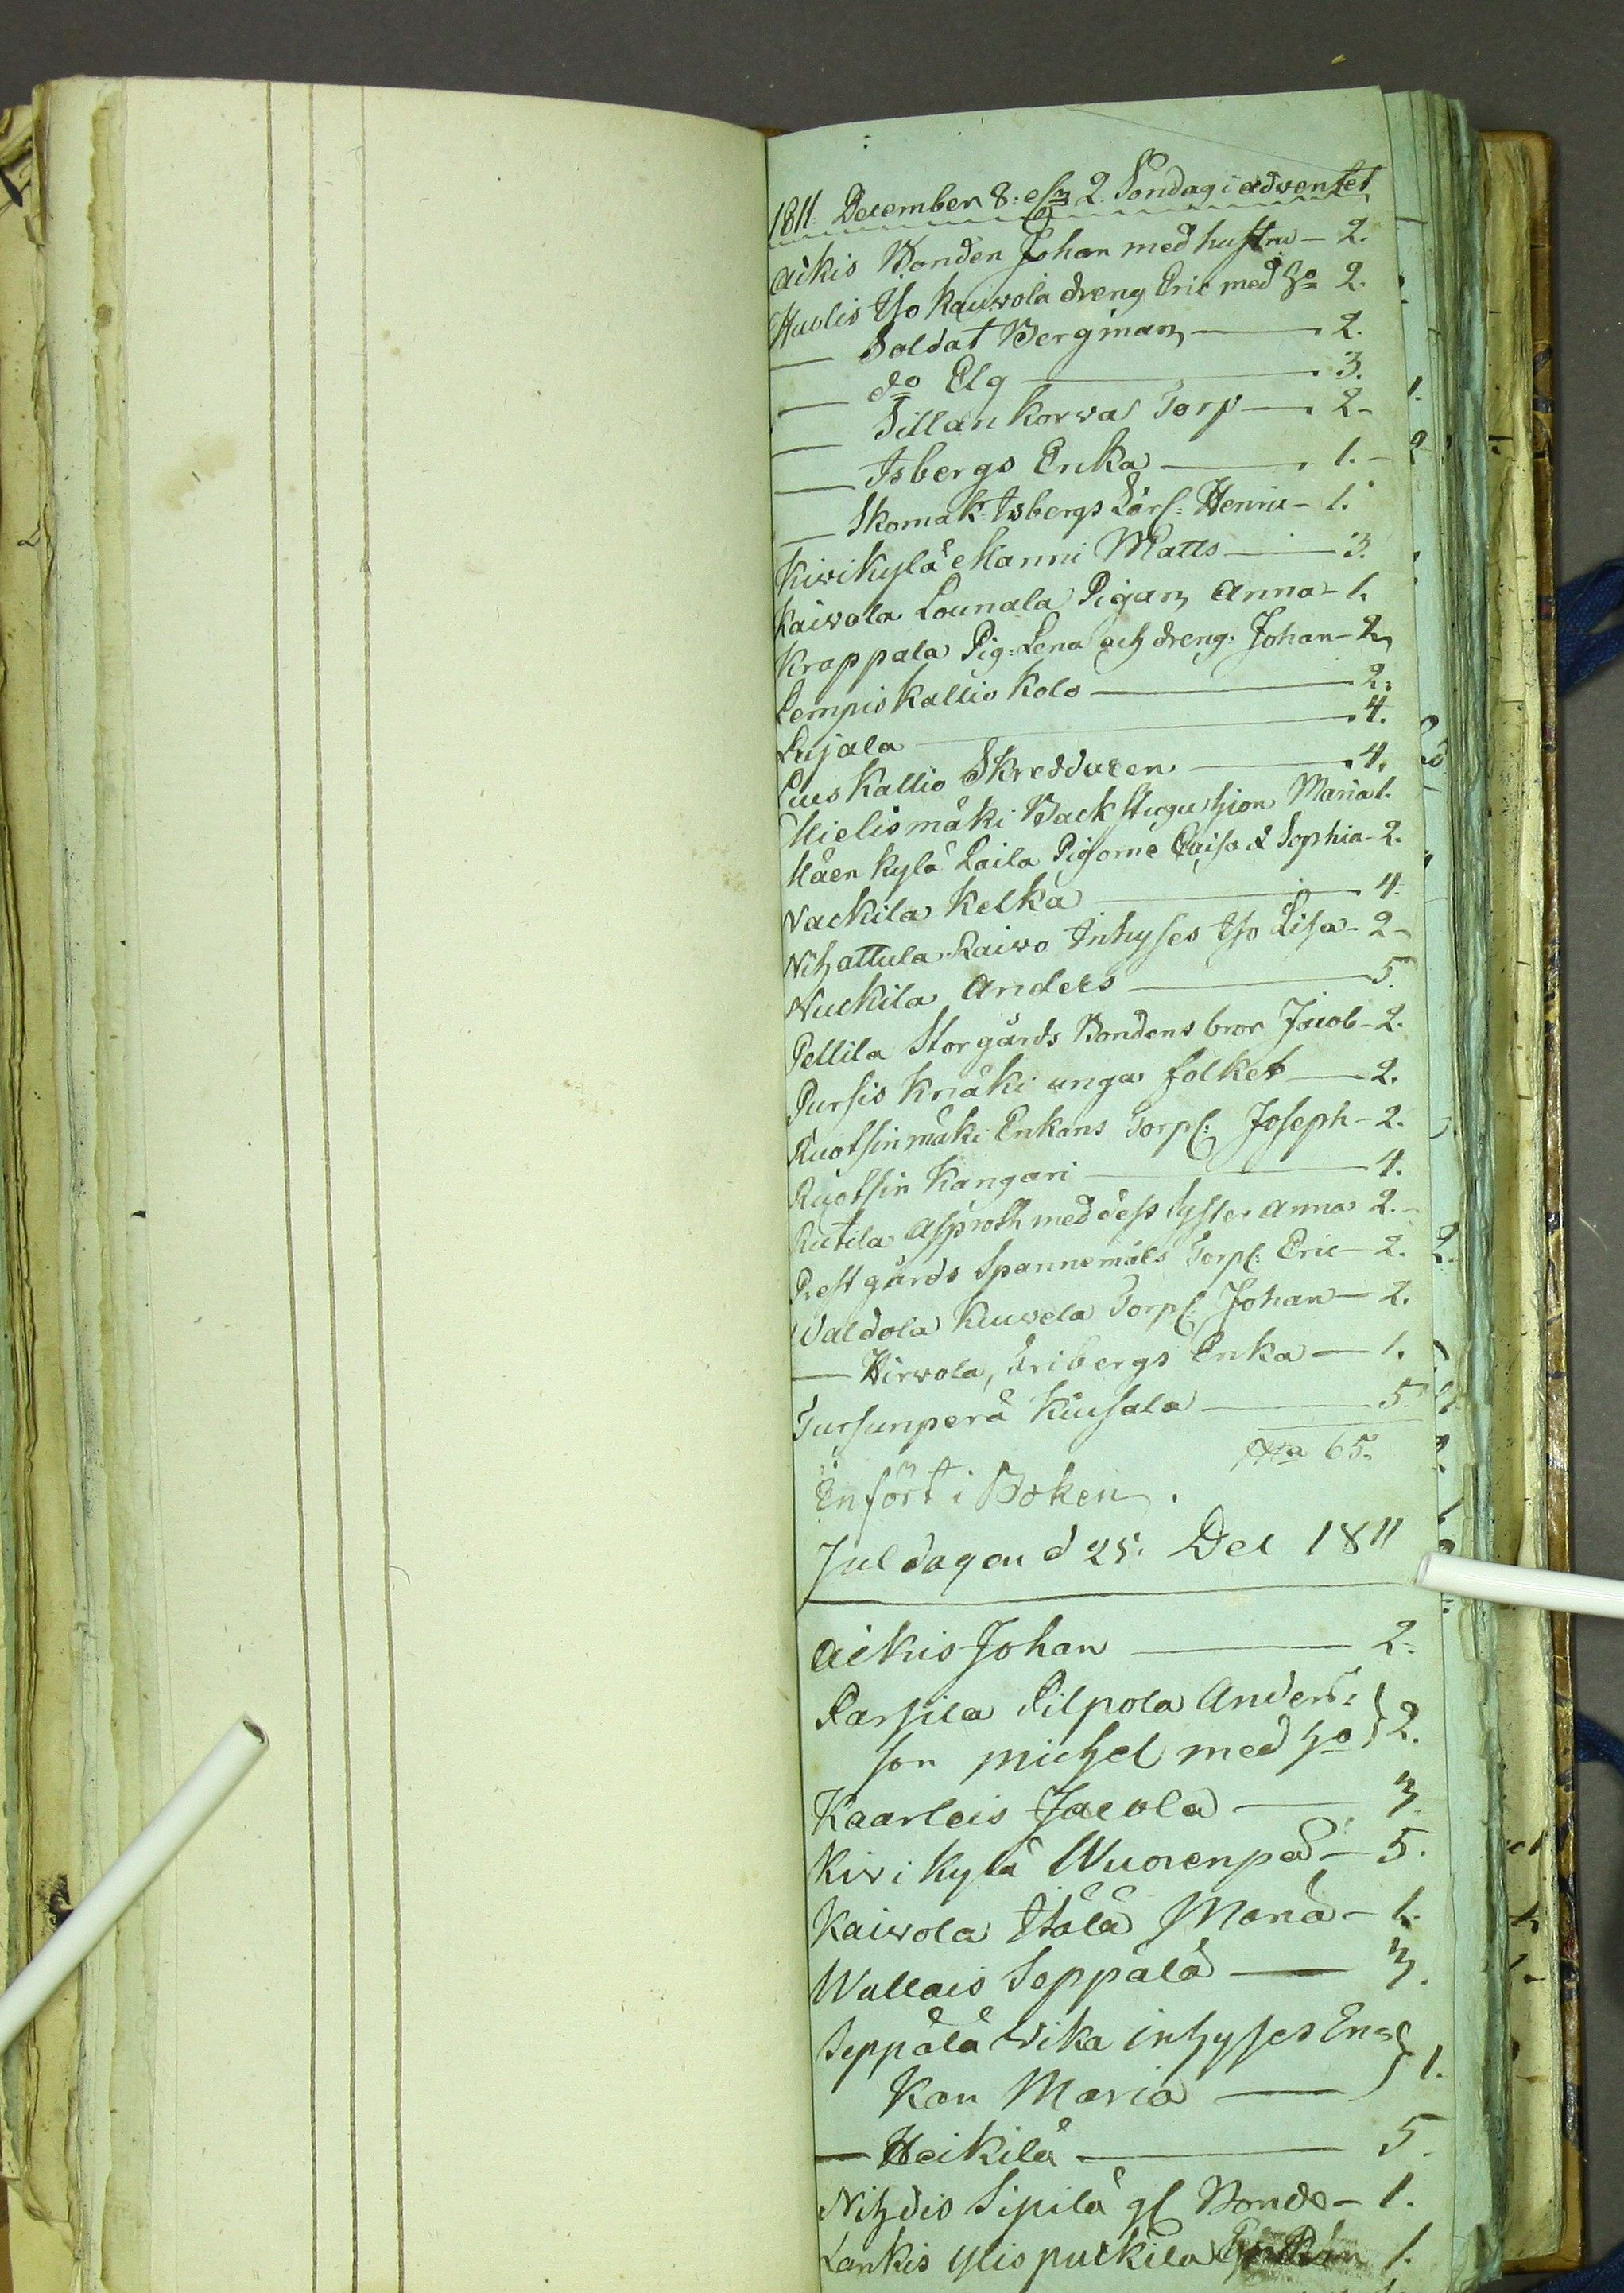 1811. December 8: 2 Söndag i adventet
Aikis Bonden Johan med hustru — 2.
Huolis Iso Kauvola dreng Eric med ho 2.
— Soldat Bergman — 2.
— do Elg — 3.
— Sillan Korva Torp — 2.
— Isbergs Enka — 1.
— Skomak: Isbergs Lärl: Henric — 1.
Kivikylä Manni Matts — 3.
Kaivola Lounala Pigan Anna — 1.
Krappala Pig: Lena och dreng: Johan — 2
Lempis Kallio Kolo — 2.
Lujala — 4.
Kallio Skreddaren — 4.
Mielismäki Backstugu hion Maria 1.
Häen Kylä Laila Pigorne Caisa & Sophia — 2.
Nackila Kelka — 4.
Nihattula Raivo Inhyses Iso Lisa — 2.
Nuckila Anders — 5.
Pellila Storgårds Bondens bror Jacob — 2.
Pursis Knäki unga folket — 2.
Ruotsinmäki Enkans Torp: Joseph — 2.
Ruotsin Kangari — 4.
Rutila Asproth med dess Syster Anna 2.
Prestgårds Spannemåls Torp: Eric — 2.
Valdola Kuvela Torp: Johan — 2.
— Hirvola, Fribergs Enka — 1.
Tursunperä Kiusala — 5.
65.
Infört i Boken.
Juldagen d 25. Dec 1811
Aikis Johan — 2.
Parsila Pilpola Anders:
son Michel med ho 2.
Kaarleis Jacola — 3.
Kivikylä Vuorenpä — 5.
Kaivola Itälä Maria — 1.
Wallais Seppälä — 3.
Seppälä Vika inhyses En=
kan Maria — 1.
— Heikilä — 5.
Nihdis Sipilä gl Bonde — 1.
Lankis Ylispuckila 1.